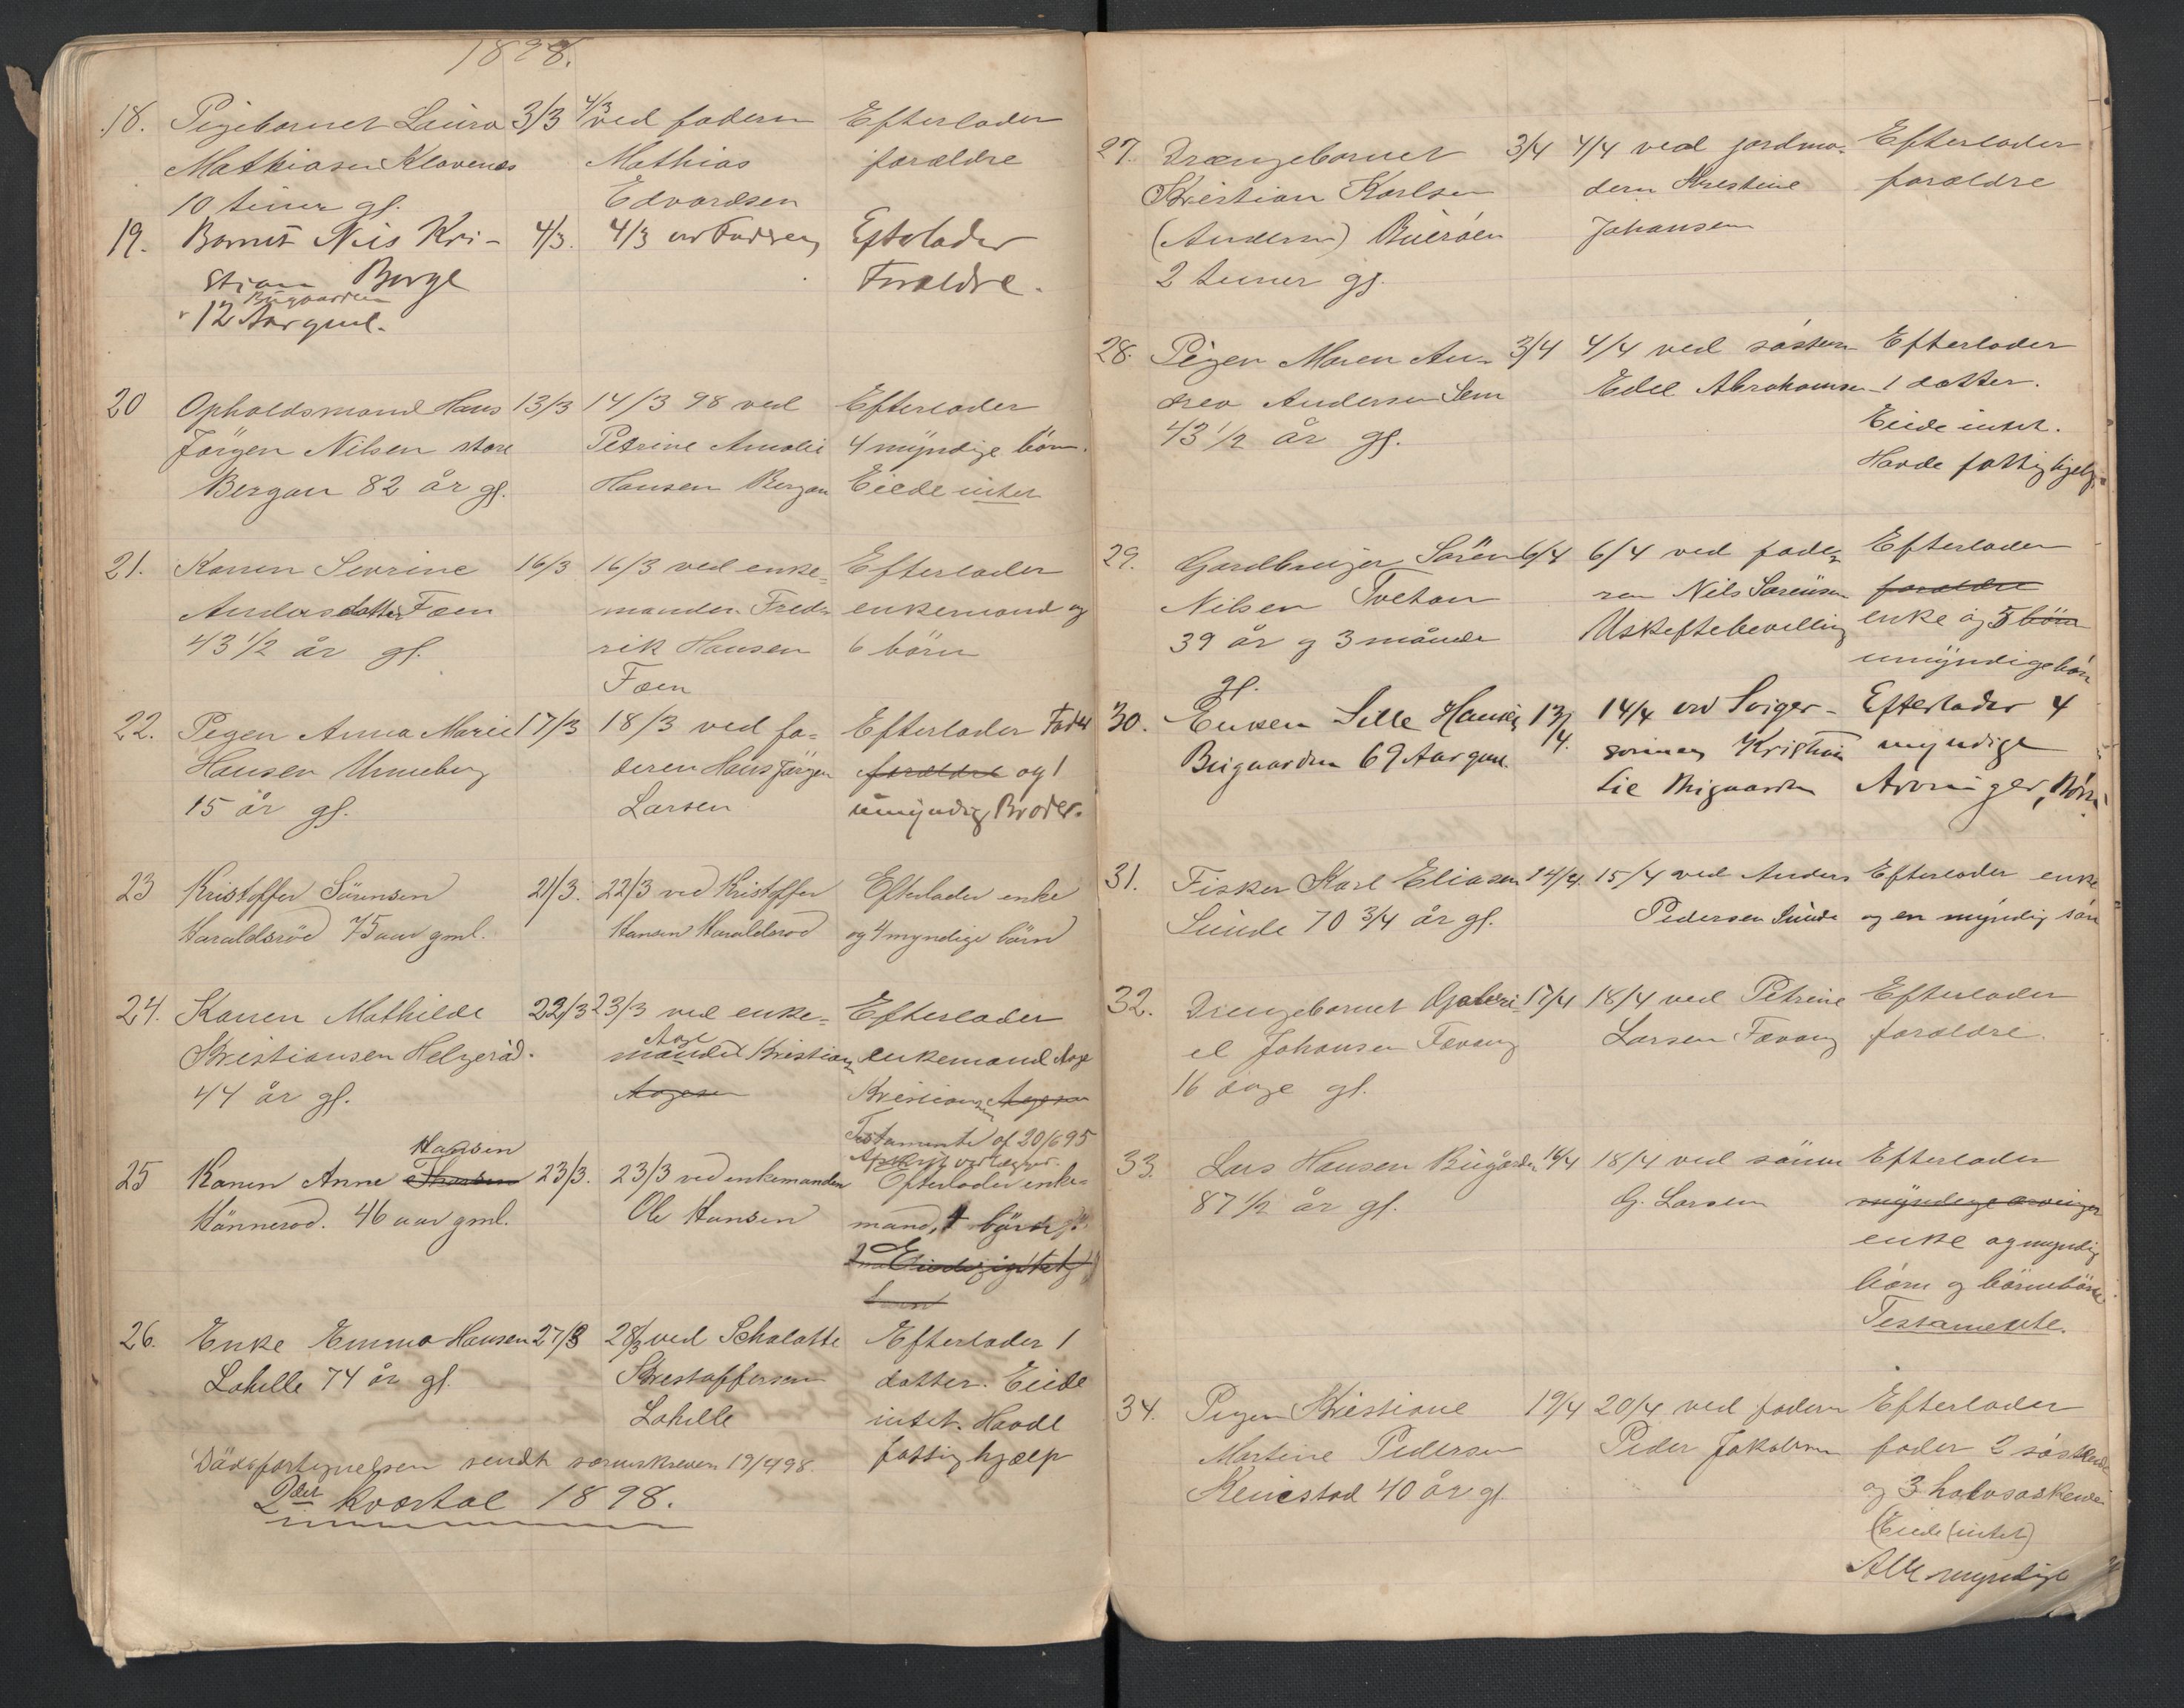 1898.
18. Pigebarnet Laura 3/3 4/3 ved faderen Efterlader
Mathiasen Klavenes Mathias forældre
10 timer gl. Edvardsen
19. Barnet Nils Kri- 4/3. 4/3 ved Faderen Efterlader
stian Berge Forældre.
Bugaarden
12 Aar gml.
20 Opholdsmand Hans 13/3 14/3 98 ved Efterlader
Jörgen Nilsen store Petrine Amalie 4 myndige börn.
Bergan 82 år gl. Hansen Bergan Eiede intet
21. Konen Sevrine 16/3 16/3 ved enke- Efterlader
Andersdatter Foen manden Fred- enkemand og
43 1/2 år gl. rik Hansen 6 börn
Foen
22. Pigen Anna Marie 17/3 18/3 ved fa- Efterlader Fader
Hansen Unneberg deren Hans Jörgen forældre og 1
15 år gl. Larsen umyndig Broder.
23 Kristoffer Sörensen 21/3. 22/3 ved Kristoffer Efterlader enke
Haraldsröd 75 aar gml. Hansen Haraldsröd og 4 myndige börn
24. Konen Mathilde 22/3 23/3 ved enke- Efterlader
Kristiansen Helgeröd. Aage
manden Kristiansen enkemand Aage
44 år gl. Aagesen Kristiansen Aagesen
Testamente af 20/6 95
Hansen
25 Konen Anne 23/3. 23/3 ved enkemanden Efterlader enke-
Hönneröd. 46 aar gml. Ole Hansen mand, 4 börn
26. Enke Emma Hansen 27/3 28/3 ved Schalatte Efterlader 1
Lahelle 74 år gl. Kristoffersen datter. Eiede
Lahelle intet. Havde
Dödsfortegnelsen sendt sorenskriveren 19/4 98. fattighjælp
2det kvartal 1898.
27. Drengebarnet 3/4 4/4 ved jordmo- Efterlader
Kristian Karlsen deren Kristine forældre
(Andersen) Bueröen Johansen
2 timer gl.
28. Pigen Maren An- 3/4 4/4 ved sösteren Efterlader
drea Andersen Sem Edel Abrahamsen 1 datter.
43 1/2 år gl. Eiede intet.
Havde fattighjelp.
29. Gardbruger Sören 6/4 6/4 ved fade- Efterlader
Nilsen Tvetan ren Nils Sörensen forældre
39 år og 3 månder Uskiftebevilling enke og 5 börn
gl. umyndige börn
30. Enken Sille Hansen 13/4. 14/4 ved Sviger- Efterlader 4
Bugaarden 69 Aar gml. sönnen Kristian myndige
Lie Bugaarden Arvinger, Börn.
31. Fisker Karl Eliasen 14/4. 15/4 ved Anders Efterlader enke
Sunde 70 3/4 år gl. Pedersen Sunde og en myndig sön
32. Drengebarnet Gabri- 17/4 18/4 ved Petrine Efterlader
el Johansen Farang Larsen Farang forældre.
16 dage gl.
33. Lars Hansen Bugården 16/4 18/4 ved sönnen Efterlader
87 1/2 år gl. G. Larsen myndige arvinger
enke og myndig
börn og börnebörn
Testamente.
34. Pigen Kristiane 19/4 20/4 ved faderen Efterlader
Martine Pedersen Peder Jakobsen fader 2 söskende
40 år gl. og 3 halvsöskende
(Eiede intet)
Alle myndige